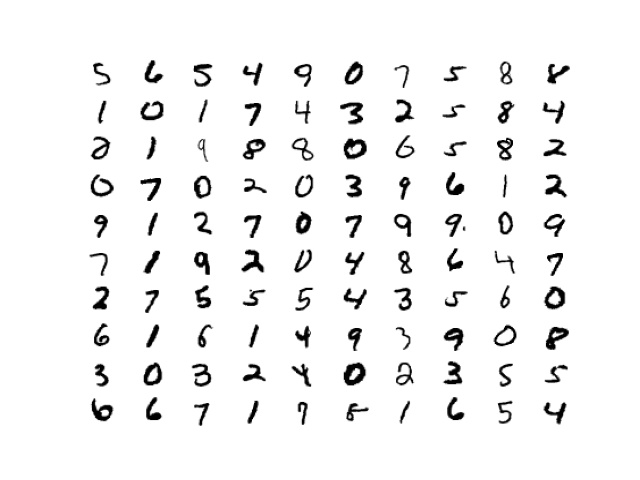 5 6 5 4 9 0 7 5 8 8
1 0 1 7 4 3 2 5 8 4
2 1 9 8 8 0 6 5 8 2
0 7 0 2 0 3 9 6 1 2
9 1 2 7 0 7 9 9 0 9
7 1 9 2 0 4 8 6 4 7
2 7 5 5 5 4 3 5 6 0
6 1 6 1 4 9 3 9 0 8
3 0 3 2 4 0 2 3 5 5
6 6 7 1 7 8 1 6 5 4